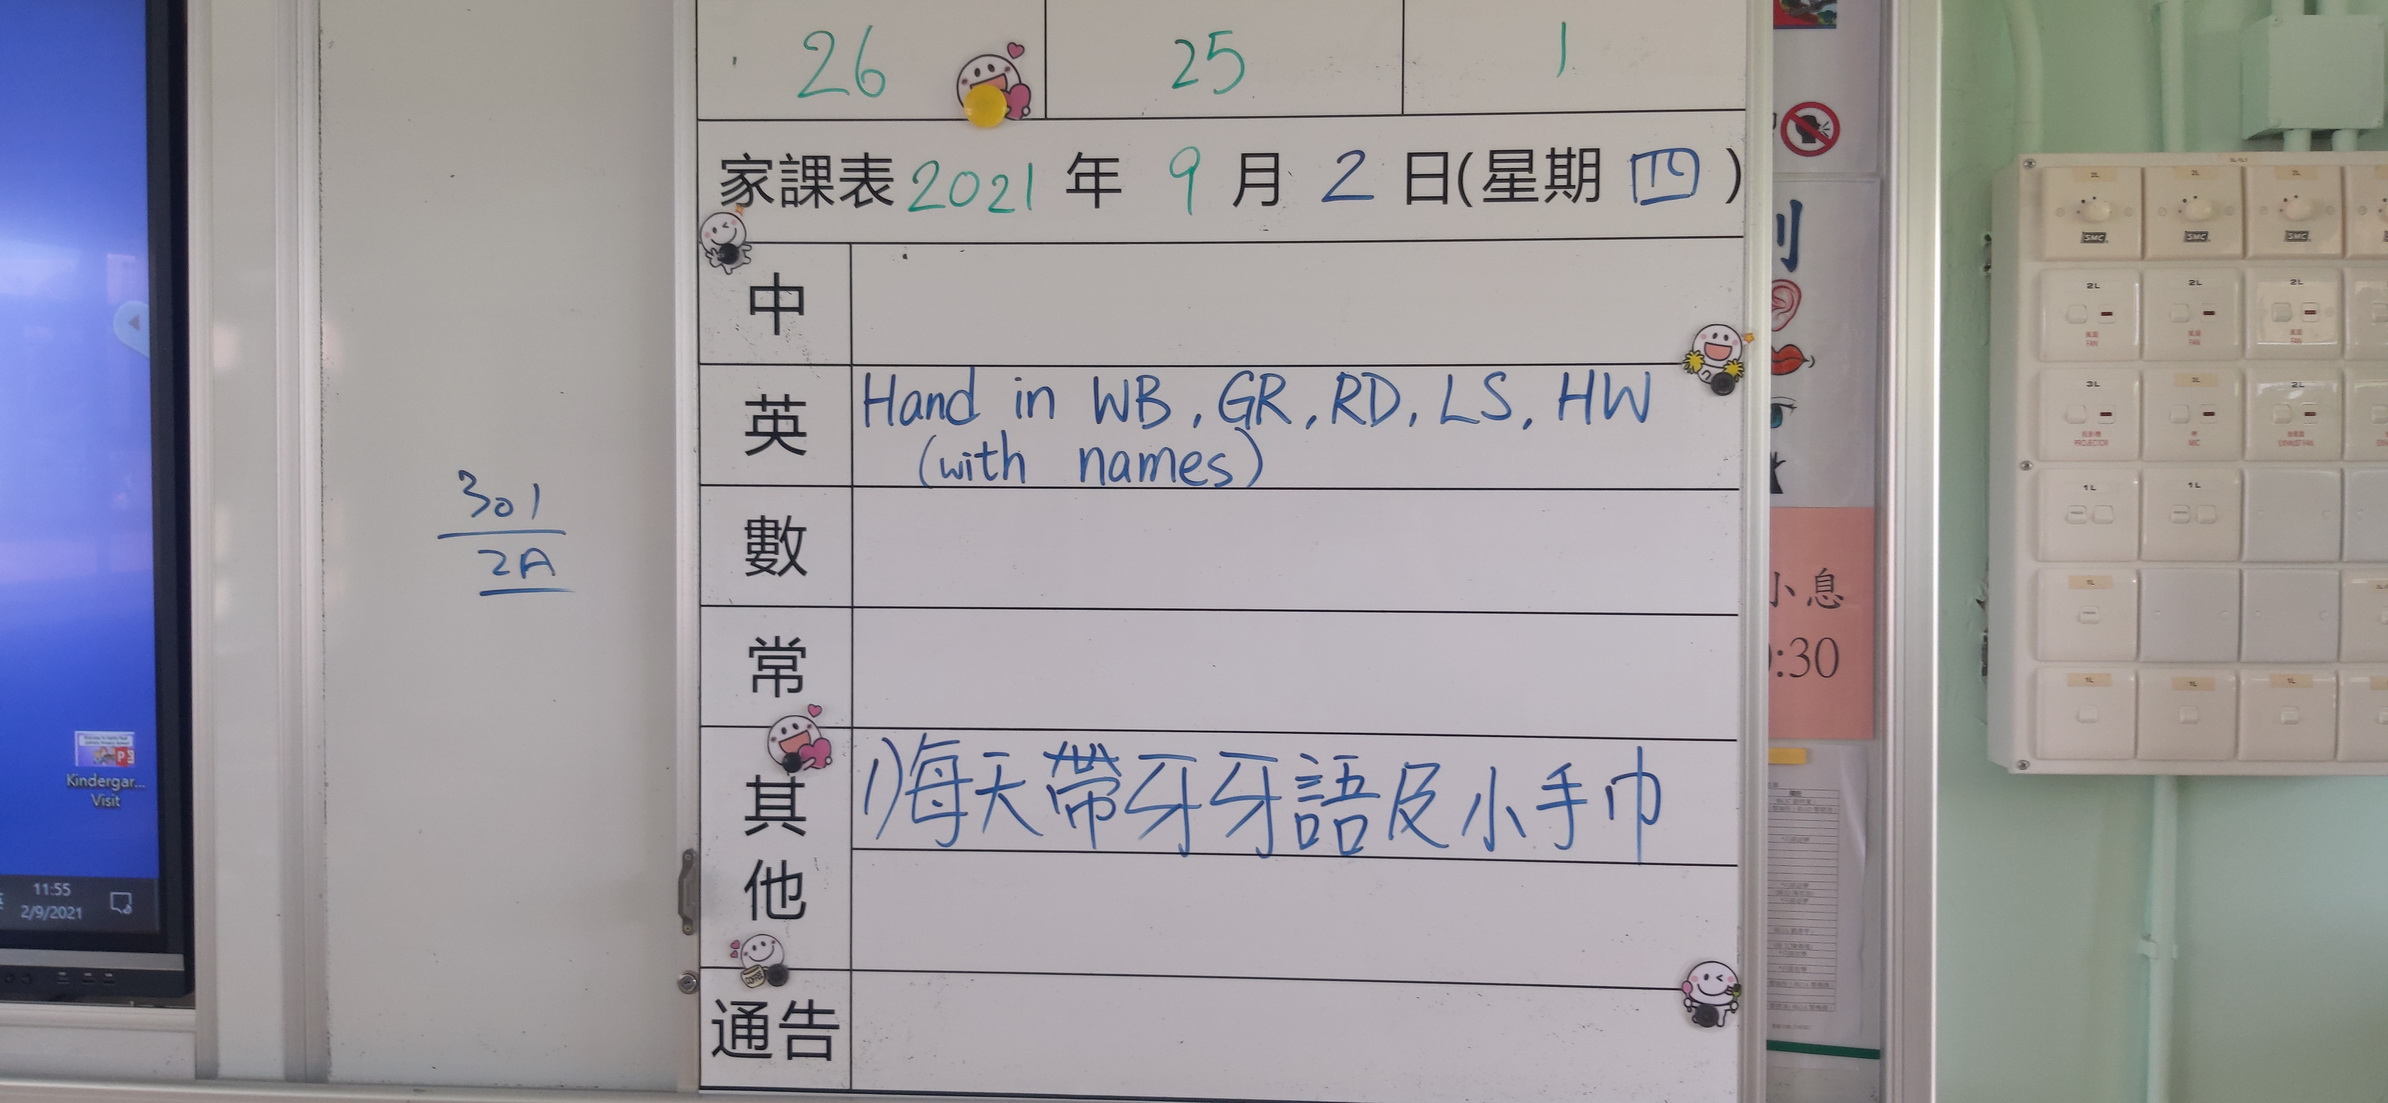 26 25 1
家課表 2021 年 9 月 2 日(星期 四)
中
英 Hand in WB, GR, RD, LS, HW
(with names)
數
常
其他 1)每天帶牙牙語及小手巾
通告
301
2A
Kindergar...
Visit
11:55
2/9/2021
小息
:30
SMC
SMC
SMC
2L 2L 2L
FAN FAN FAN
3L 2L
PROJECTOR MIC EXHAUST FAN
1L 1L
1L
1L 1L 1L